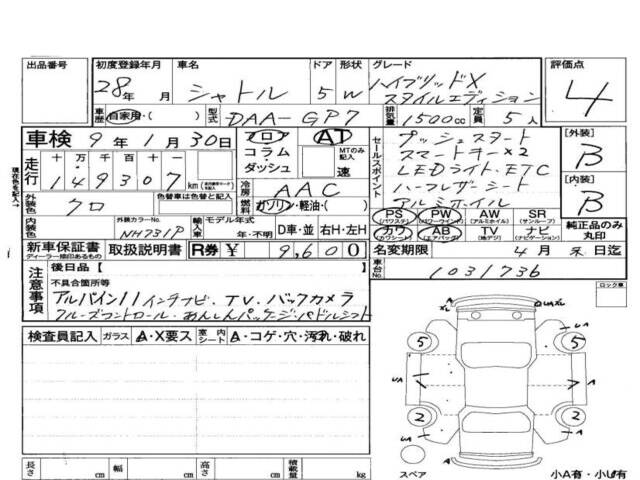 出品番号 初度登録年月 車名 ドア 形状 グレード 評価点
28年 月 シャトル 5 W ハイブリッドX
スタイルエディション 4
車歴 自家用・( ) 型式 DAA-GP7 排気量 1500cc 定員 5人
車検 9年1月30日 フロア AT
コラム・ MTのみ記入
ダッシュ 速
セールスポイント プッシュスタート
スマートキー×2
LEDライト・ETC
ハーフレザーシート
アルミホイル
[外装] B
[内装] B
現在色を記入→
走行 十万 千 百 十
149307 km
冷房 AAC
外装色 クロ 色替車は色替えも記入 燃料 ガソリン・軽油・( )
PS (パワステ) PW (パワーウインド) AW (アルミホイル) SR (サンルーフ)
カワ (カワシート) AB (エアバッグ) TV (地デジ) ナビ (ナビゲーション) 純正品のみ丸印
内装色 外装カラーNo. NH731P 輸入車 モデル年式 年・不明 D車・並 右H・左H
新車保証書 ディーラー捺印あるもの 取扱説明書 R券 ¥ 9,600 名変期限 4月末日迄
注意事項 後日品【
不具合箇所等
アルパイン11インチナビ・TV・バックカメラ
クルーズコントロール・あんしんパッケージ・パドルシフト
車台No. 1031736
ロック車
検査員記入 ガラス A・X要ス 室内シート A・コゲ・穴・汚れ・破れ
XL U
UA
5 5
UA A
2 2
A A
スペア
長さ cm 幅 cm 高さ cm 積載量 kg
小A有・小U有